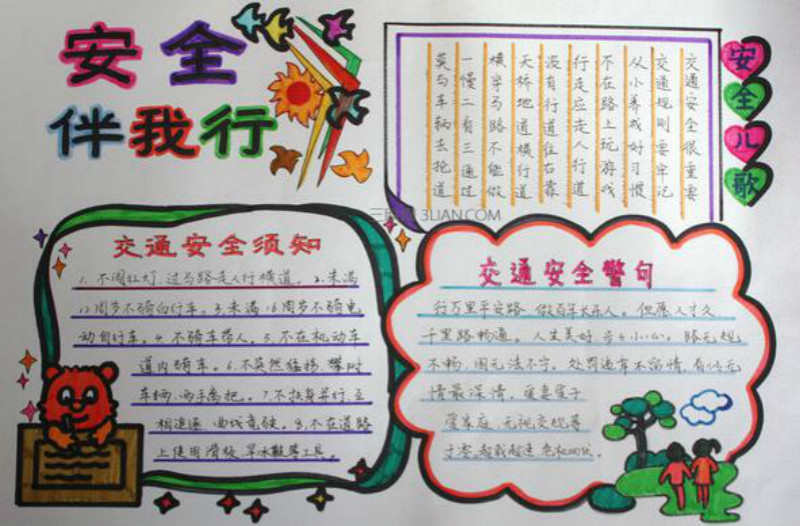 安全
伴我行
安全儿歌
交通安全很重要
交通规则要牢记
从小养成好习惯
不在路上玩游戏
行走应走人行道
没有行道往右靠
天桥地道横行道
横穿马路不能做
一慢二看三通过
莫与车辆去抢道
3LIAN.COM
交通安全须知
1.不闯红灯,过马路走人行横道。2.未满
12周岁不骑自行车。3.未满16周岁不骑电
动自行车。4.不骑车带人。5.不在机动车
道内骑车。6.不突然猛拐,攀附
车辆,两手离把。7.不扶身并行,互
相追逐,曲线竞驶。8.不在道路
上使用滑板,旱冰鞋等工具。
交通安全警句
行万里平安路 做百年长乐人。但愿人才久
千里路畅通。人生美好 步步小心。路无规
不畅,国无法不宁。处罚违章不留情,看似无
情最深情。爱妻爱子
爱家庭,无视交规等
于零,超载超速 危机四伏。